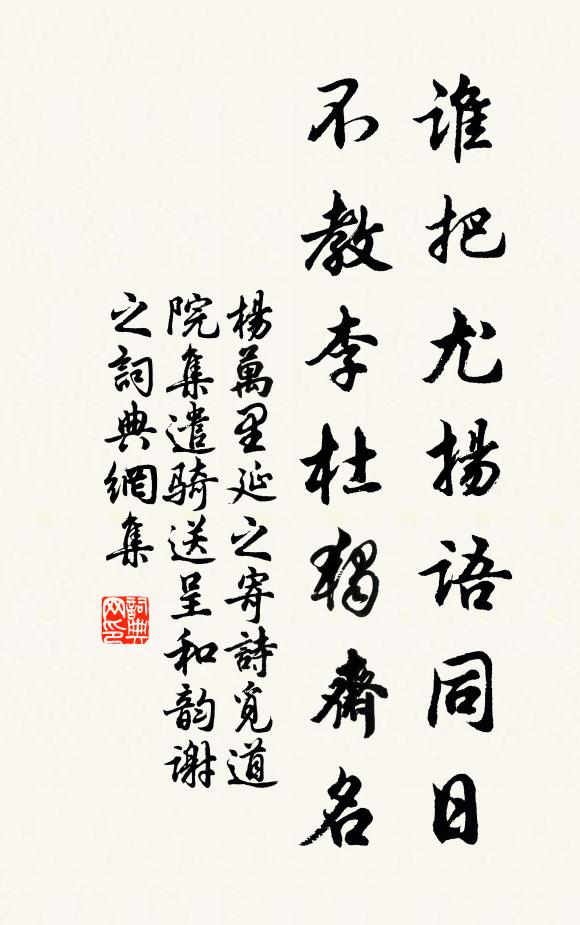 誰把尤揚語同日
不教李杜獨齊名
楊萬里延之寄詩覓道
院集遣騎送呈和韵謝
之詞典網集
詞典
网印